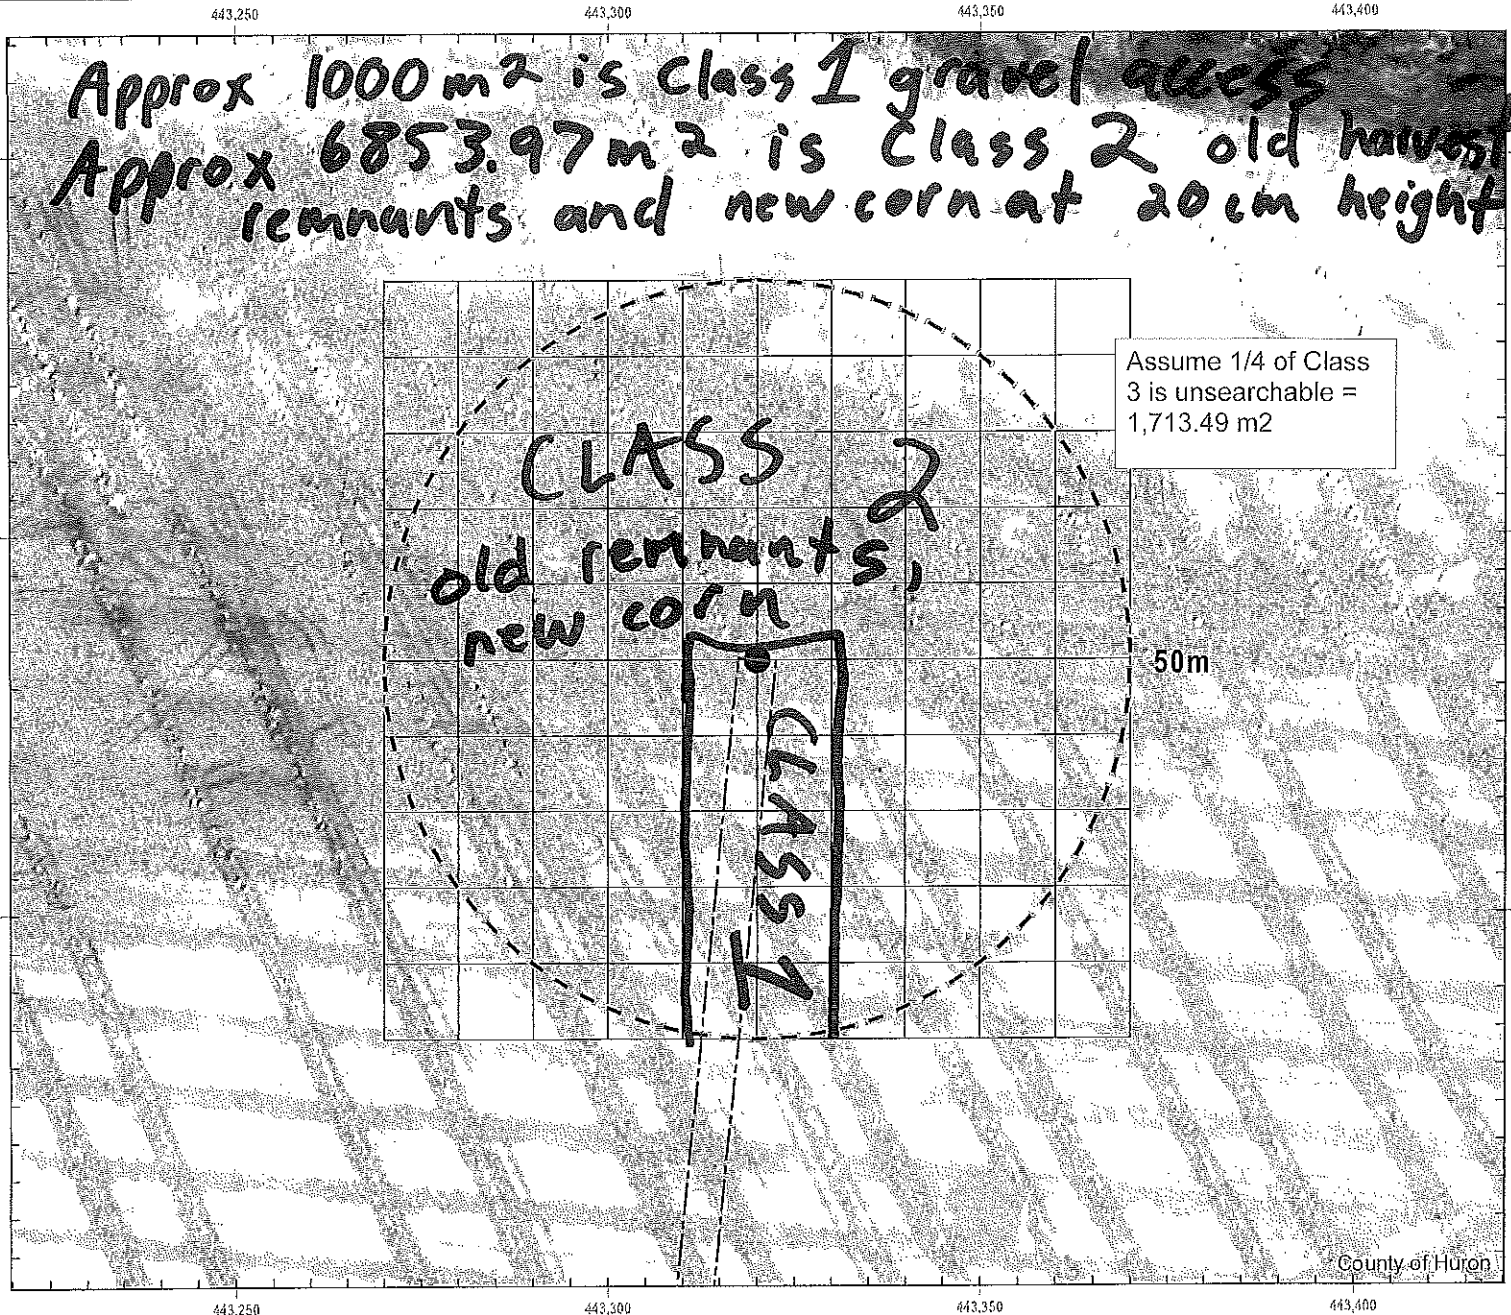 443,250 443,300 443,350 443,400
Approx 1000 m2 is Class 1 gravel access
Approx 6853.97 m2 is Class 2 old harvest
remnants and new corn at 20 cm height
Assume 1/4 of Class
3 is unsearchable =
1,713.49 m2
CLASS 2
old remnants,
new corn
50m
CLASS 1
County of Huron
443,250 443,300 443,350 443,400